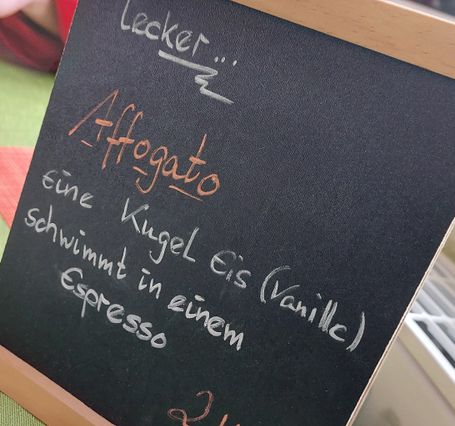 Lecker...
Affogato
Eine Kugel Eis (Vanille)
schwimmt in einem
Espresso